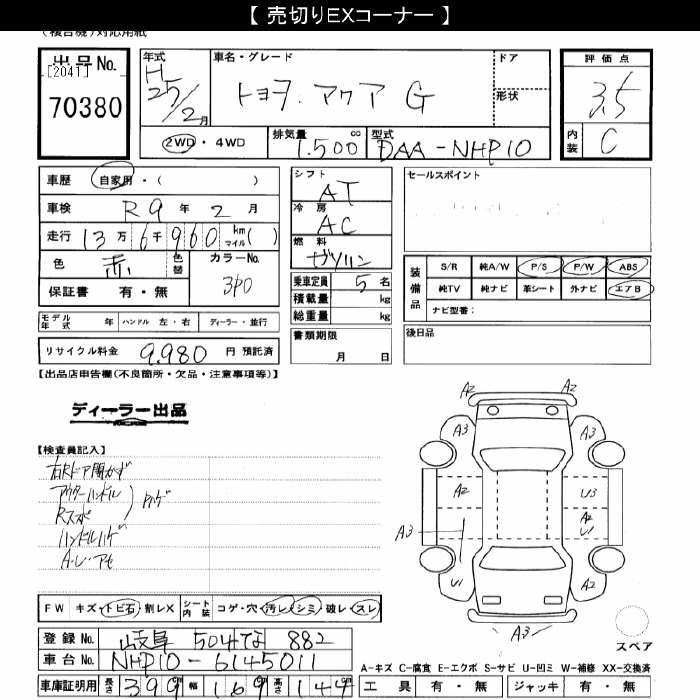 【 売切りEXコーナー 】
(複合機)対応用紙
出品No.
[2041]
70380
年式
H
25/2月
車名・グレード
トヨタ. アクア G
ドア
形状
2WD・4WD
排気量 1.500 cc
型式 DAA-NHP10
評価点
3.5
内装 C
車歴 自家用・( )
車検 R9年 2月
走行 13万6千960 km マイル( )
色 赤 色替 カラーNo. 3P0
保証書 有・無
シフト AT
冷房 AC
燃料 ガソリン
乗車定員 5名
積載量 kg
総重量 kg
書類期限
月 日
セールスポイント
装備品
S/R 純A/W P/S P/W ABS
純TV 純ナビ 革シート 外ナビ エアB
ナビ型番:
モデル年式 年 ハンドル 左・右 ディーラー・並行
リサイクル料金 9.980円 預託済
後日品
【出品店申告欄(不良箇所・欠品・注意事項等)】
ディーラー出品
【検査員記入】
アウターハンドル
Rスポ
ハンドルハゲ
A2 A2
A3 A3
A2 U3
A3 A2 U1
U1 A2
A3
FW キズ・トビ石・割レX シート内装 コゲ・穴・汚レ・シミ・破レ・スレ
スペア
登録No. 岐阜 504 な 882
車台No. NHP10-6145011
A-キズ C-腐食 E-エクボ S-サビ U-凹ミ W-補修 XX-交換済
車庫証明用 長さ 399 幅 169 高さ 144
工具 有・無 ジャッキ 有・無